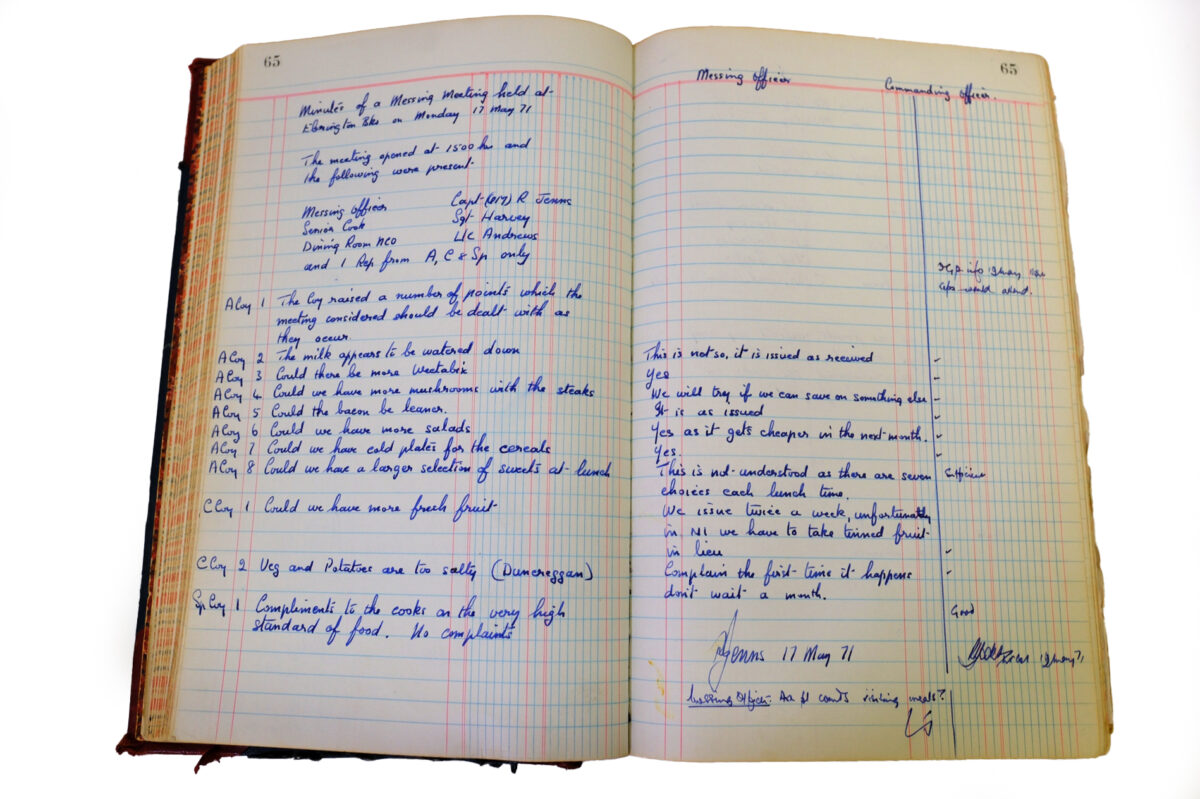 65
Minutes of a Messing Meeting held at
Ebrington Bks on Monday 17 May 71
The meeting opened at 1500 hrs and
the following were present
Messing Officer Capt (QM) R Jenns
Senior Cook Sgt Harvey
Dining Room NCO L/C Andrews
and 1 Rep from A, C & Sp only
A Coy 1 The Coy raised a number of points which the
meeting considered should be dealt with as
they occur.
A Coy 2 The milk appears to be watered down
A Coy 3 Could there be more Weetabix
A Coy 4 Could we have more mushrooms with the steaks
A Coy 5 Could the bacon be leaner.
A Coy 6 Could we have more salads
A Coy 7 Could we have cold plates for the cereals
A Coy 8 Could we have a larger selection of sweets at lunch
C Coy 1 Could we have more fresh fruit
C Coy 2 Veg and Potatoes are too salty (Duncreggan)
Sp Coy 1 Compliments to the cooks on the very high
standard of food. No complaints
65
Messing Officer Commanding Officer.
This is not so, it is issued as received
Yes
We will try, if we can save on something else
It is as issued
Yes as it gets cheaper in the next month.
Yes.
This is not understood as there are seven Sufficient
choices each lunch time.
We issue twice a week, unfortunately
in NI we have to take tinned fruit
in lieu
Complain the first time it happens
don't wait a month.
Good
Jenns 17 May 71
19 May 71
Messing Officer visiting meals?